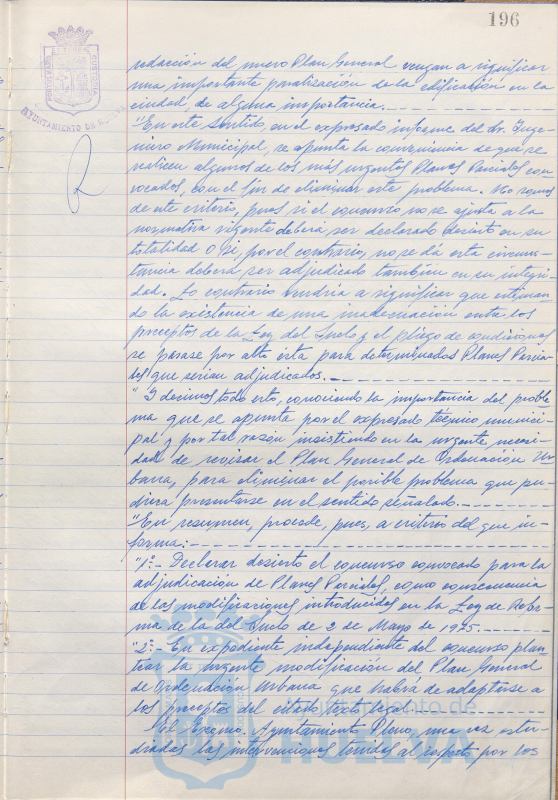 196
AYUNTAMIENTO DE HUELVA
redacción del nuevo Plan General vengan a significar
una importante paralización de la edificación en la
ciudad, de alguna importancia.
"En este sentido, en el expresado informe del Sr. Inge-
niero Municipal, se apunta la conveniencia de que se
realicen algunos de los más urgentes Planes Parciales con-
vocados, con el fin de eliminar este problema. No somos
de este criterio, pues si el concurso no se ajusta a la
normativa vigente deberá ser declarado desierto en su
totalidad o si, por el contrario, no se dá esta circuns-
tancia deberá ser adjudicado también en su integri-
dad. Lo contrario vendría a significar que estiman-
do la existencia de una inadecuación entre los
preceptos de la Ley del Suelo y el pliego de condiciones
se pasase por alto ésta para determinados Planes Parcia-
les que serían adjudicados.
"Y decimos todo esto, conociendo la importancia del proble-
ma que se apunta por el expresado técnico munici-
pal y por tal razón insistiendo en la urgente necesi-
dad de revisar el Plan General de Ordenación Ur-
bana, para eliminar el posible problema que pu-
diera presentarse en el sentido señalado.
"En resumen, procede, pues, a criterio del que in-
forma:
"1º.- Declarar desierto el concurso convocado para la
adjudicación de Planes Parciales, como consecuencia
de las modificaciones introducidas en la Ley de Refor-
ma de la del Suelo de 2 de Mayo de 1975.
"2º.- En expediente independiente del concurso plan-
tear la urgente modificación del Plan General
de Ordenación Urbana que habrá de adaptarse a
los preceptos del citado texto legal.
El Excmo. Ayuntamiento Pleno, una vez estu-
diadas las intervenciones tenidas al respecto por los
Ayuntamiento de
HUELVA